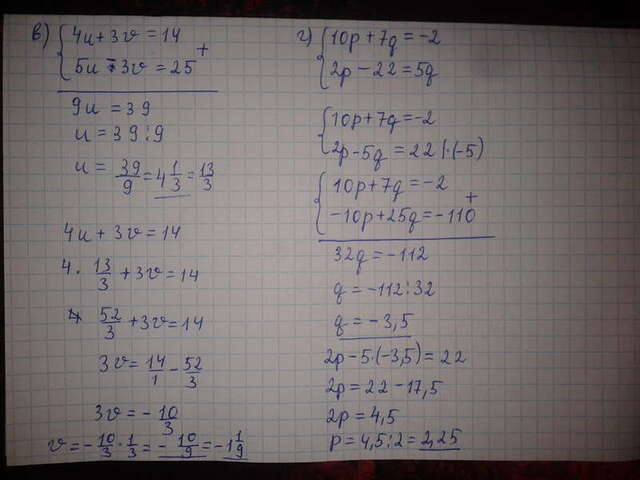 в) { 4u + 3v = 14
5u - 3v = 25 +
9u = 39
u = 39 : 9
u = 39/9 = 4 1/3 = 13/3
4u + 3v = 14
4 · 13/3 + 3v = 14
52/3 + 3v = 14
3v = 14/1 - 52/3
3v = - 10/3
v = - 10/3 · 1/3 = - 10/9 = -1 1/9
г) { 10p + 7q = -2
2p - 22 = 5q
{ 10p + 7q = -2
2p - 5q = 22 | · (-5)
{ 10p + 7q = -2 +
-10p + 25q = -110
32q = -112
q = -112 : 32
q = -3,5
2p - 5·(-3,5) = 22
2p = 22 - 17,5
2p = 4,5
p = 4,5 : 2 = 2,25